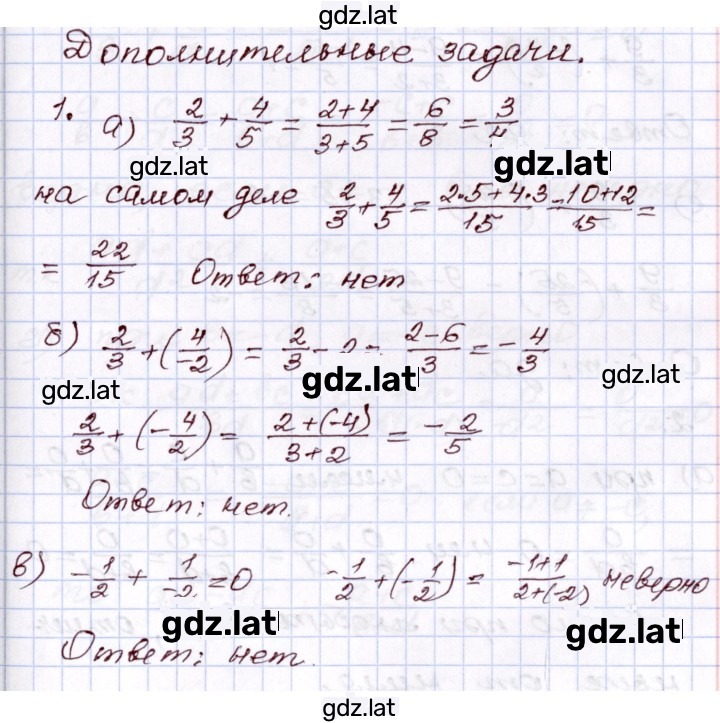 gdz.lat
Дополнительные задачи.
1. а) 2/3 + 4/5 = (2+4)/(3+5) = 6/8 = 3/4
gdz.lat gdz.lat
на самом деле 2/3 + 4/5 = (2·5+4·3)/15 = (10+12)/15 =
= 22/15 Ответ: нет
б) 2/3 + (4/-2) = 2/3 - 2 = (2-6)/3 = -4/3
gdz.lat gdz.lat gdz.lat
2/3 + (-4/2) = (2+(-4))/(3+2) = -2/5
Ответ: нет.
в) -1/2 + 1/-2 = 0 -1/2 + (-1/2) = (-1+1)/(2+(-2)) неверно
gdz.lat gdz.lat
Ответ: нет.
gdz.lat